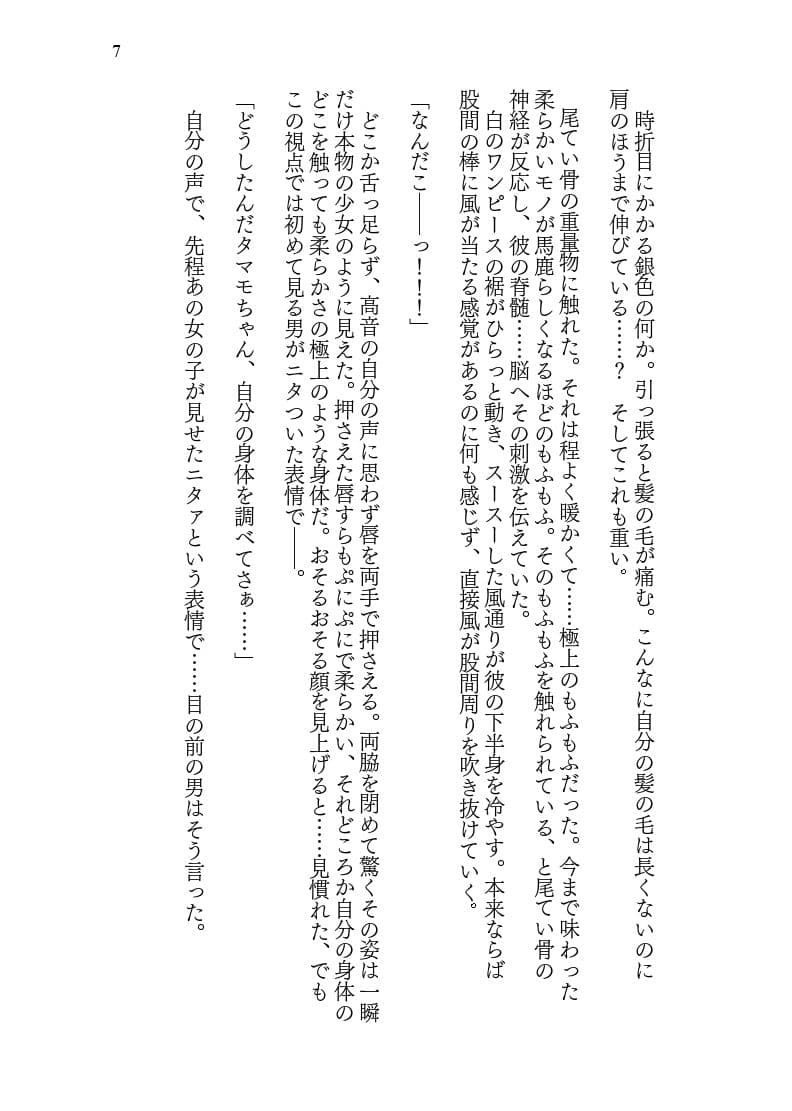 7
　時折目にかかる銀色の何か。引っ張ると髪の毛が痛む。こんなに自分の髪の毛は長くないのに
肩のほうまで伸びている……？　そしてこれも重い。
　尾てい骨の重量物に触れた。それは程よく暖かくて……極上のもふもふだった。今まで味わった
柔らかいモノが馬鹿らしくなるほどのもふもふ。そのもふもふを触れられている、と尾てい骨の
神経が反応し、彼の脊髄……脳へその刺激を伝えていた。
　白のワンピースの裾がひらっと動き、スースーした風通りが彼の下半身を冷やす。本来ならば
股間の棒に風が当たる感覚があるのに何も感じず、直接風が股間周りを吹き抜けていく。
「なんだこ――っ！！！」
　どこか舌っ足らず、高音の自分の声に思わず唇を両手で押さえる。両脇を閉めて驚くその姿は一瞬
だけ本物の少女のように見えた。押さえた唇すらもぷにぷにで柔らかい、それどころか自分の身体の
どこを触っても柔らかさの極上のような身体だ。おそるおそる顔を見上げると……見慣れた、でも
この視点では初めて見る男がニタついた表情で――。
「どうしたんだタマモちゃん、自分の身体を調べてさぁ……」
　自分の声で、先程あの女の子が見せたニタァという表情で……目の前の男はそう言った。